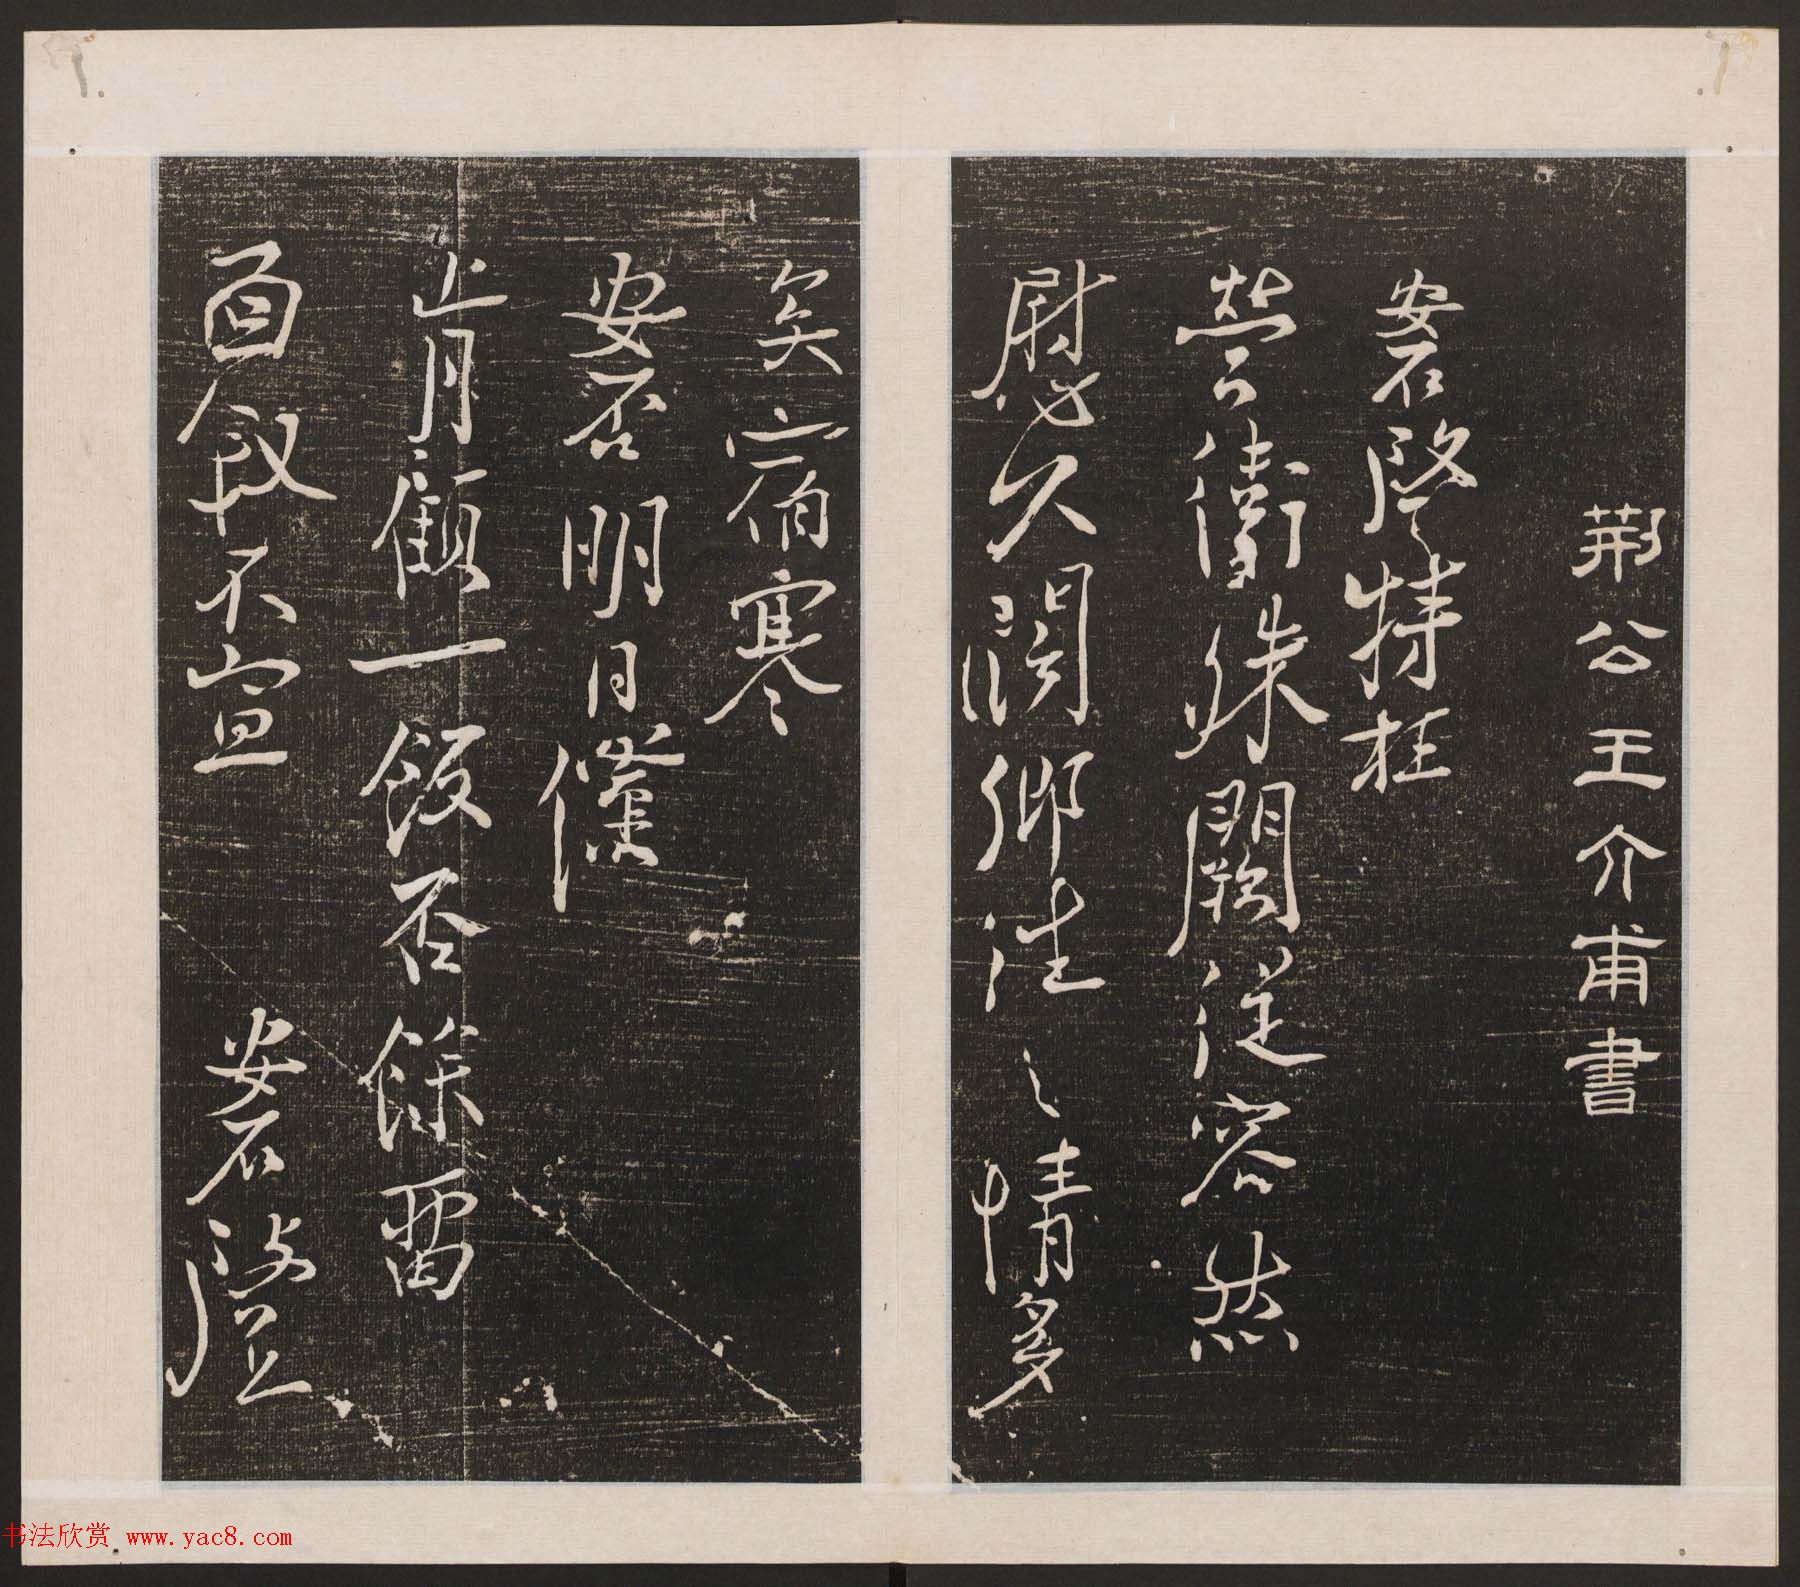 荊公王介甫書
安石啓特枉
營衛殊闕從容然
慰久闊鄉往之情多
矣宿寒
安否明日儻
肯顧一飯否餘留
面敘不宣 安石啓上
书法欣赏 www.yac8.com